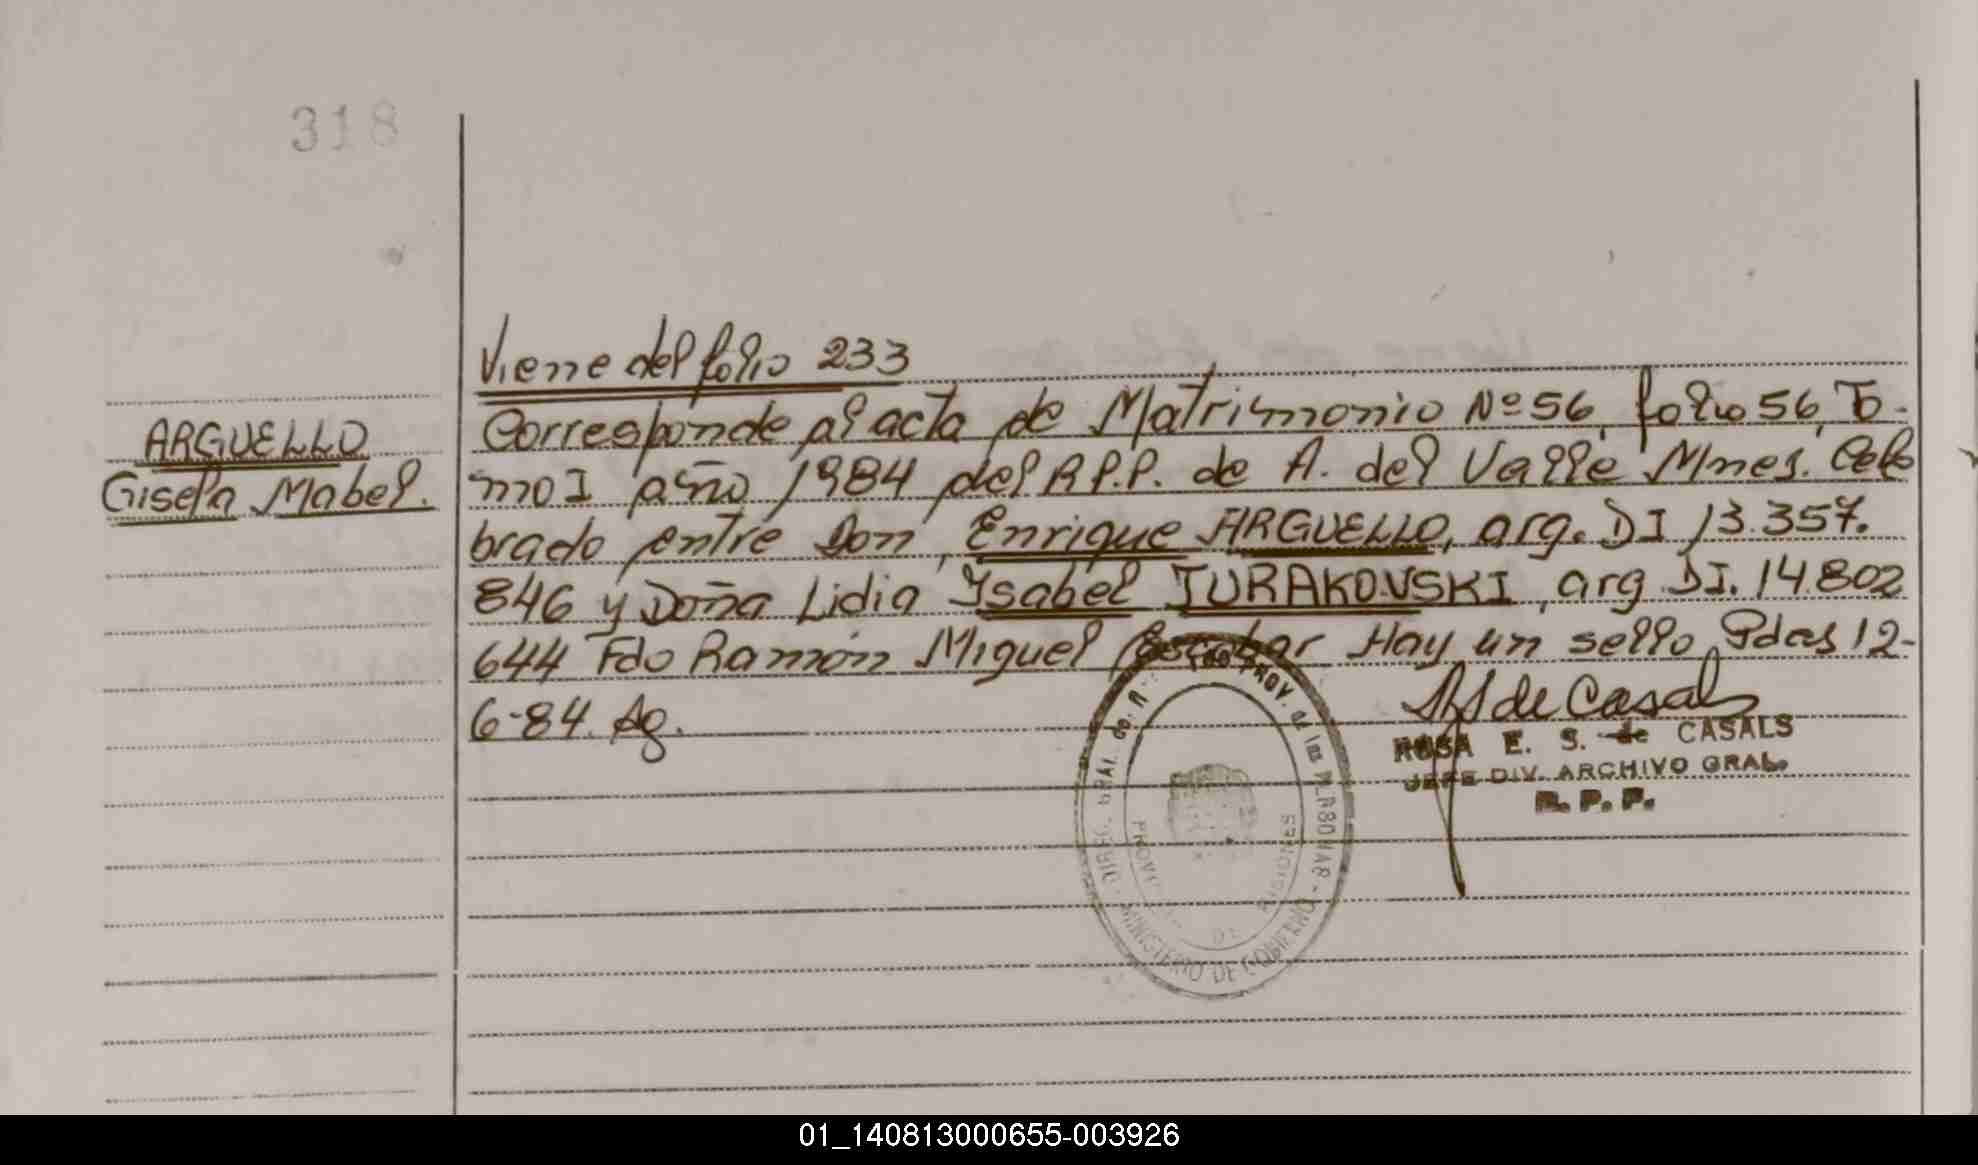 318
Viene del folio 233
ARGUELLO
Gisela Mabel.
Corresponde al acta de Matrimonio Nº 56, folio 56, To-
mo I año 1984 del R.P.P. de A. del Valle Mnes. Cele
brado entre Don, Enrique ARGUELLO, arg. DI 13.357.
846 y Doña Lidia Isabel TURAKOVSKI, arg DI. 14.802
644 Fdo Ramón Miguel Escobar Hay un sello Pdas 12-
6-84. Ag.
RS de Casals
ROSA E. S. de CASALS
JEFE DIV. ARCHIVO GRAL.
R. P. P.
PROV. de las PERSONAS
MINISTERIO DE GOBIERNO
DE MISIONES
01_140813000655-003926